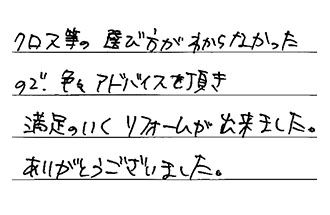 クロス等の選び方がわからなかった
ので、色々アドバイスを頂き
満足のいくリフォームが出来ました。
ありがとうございました。